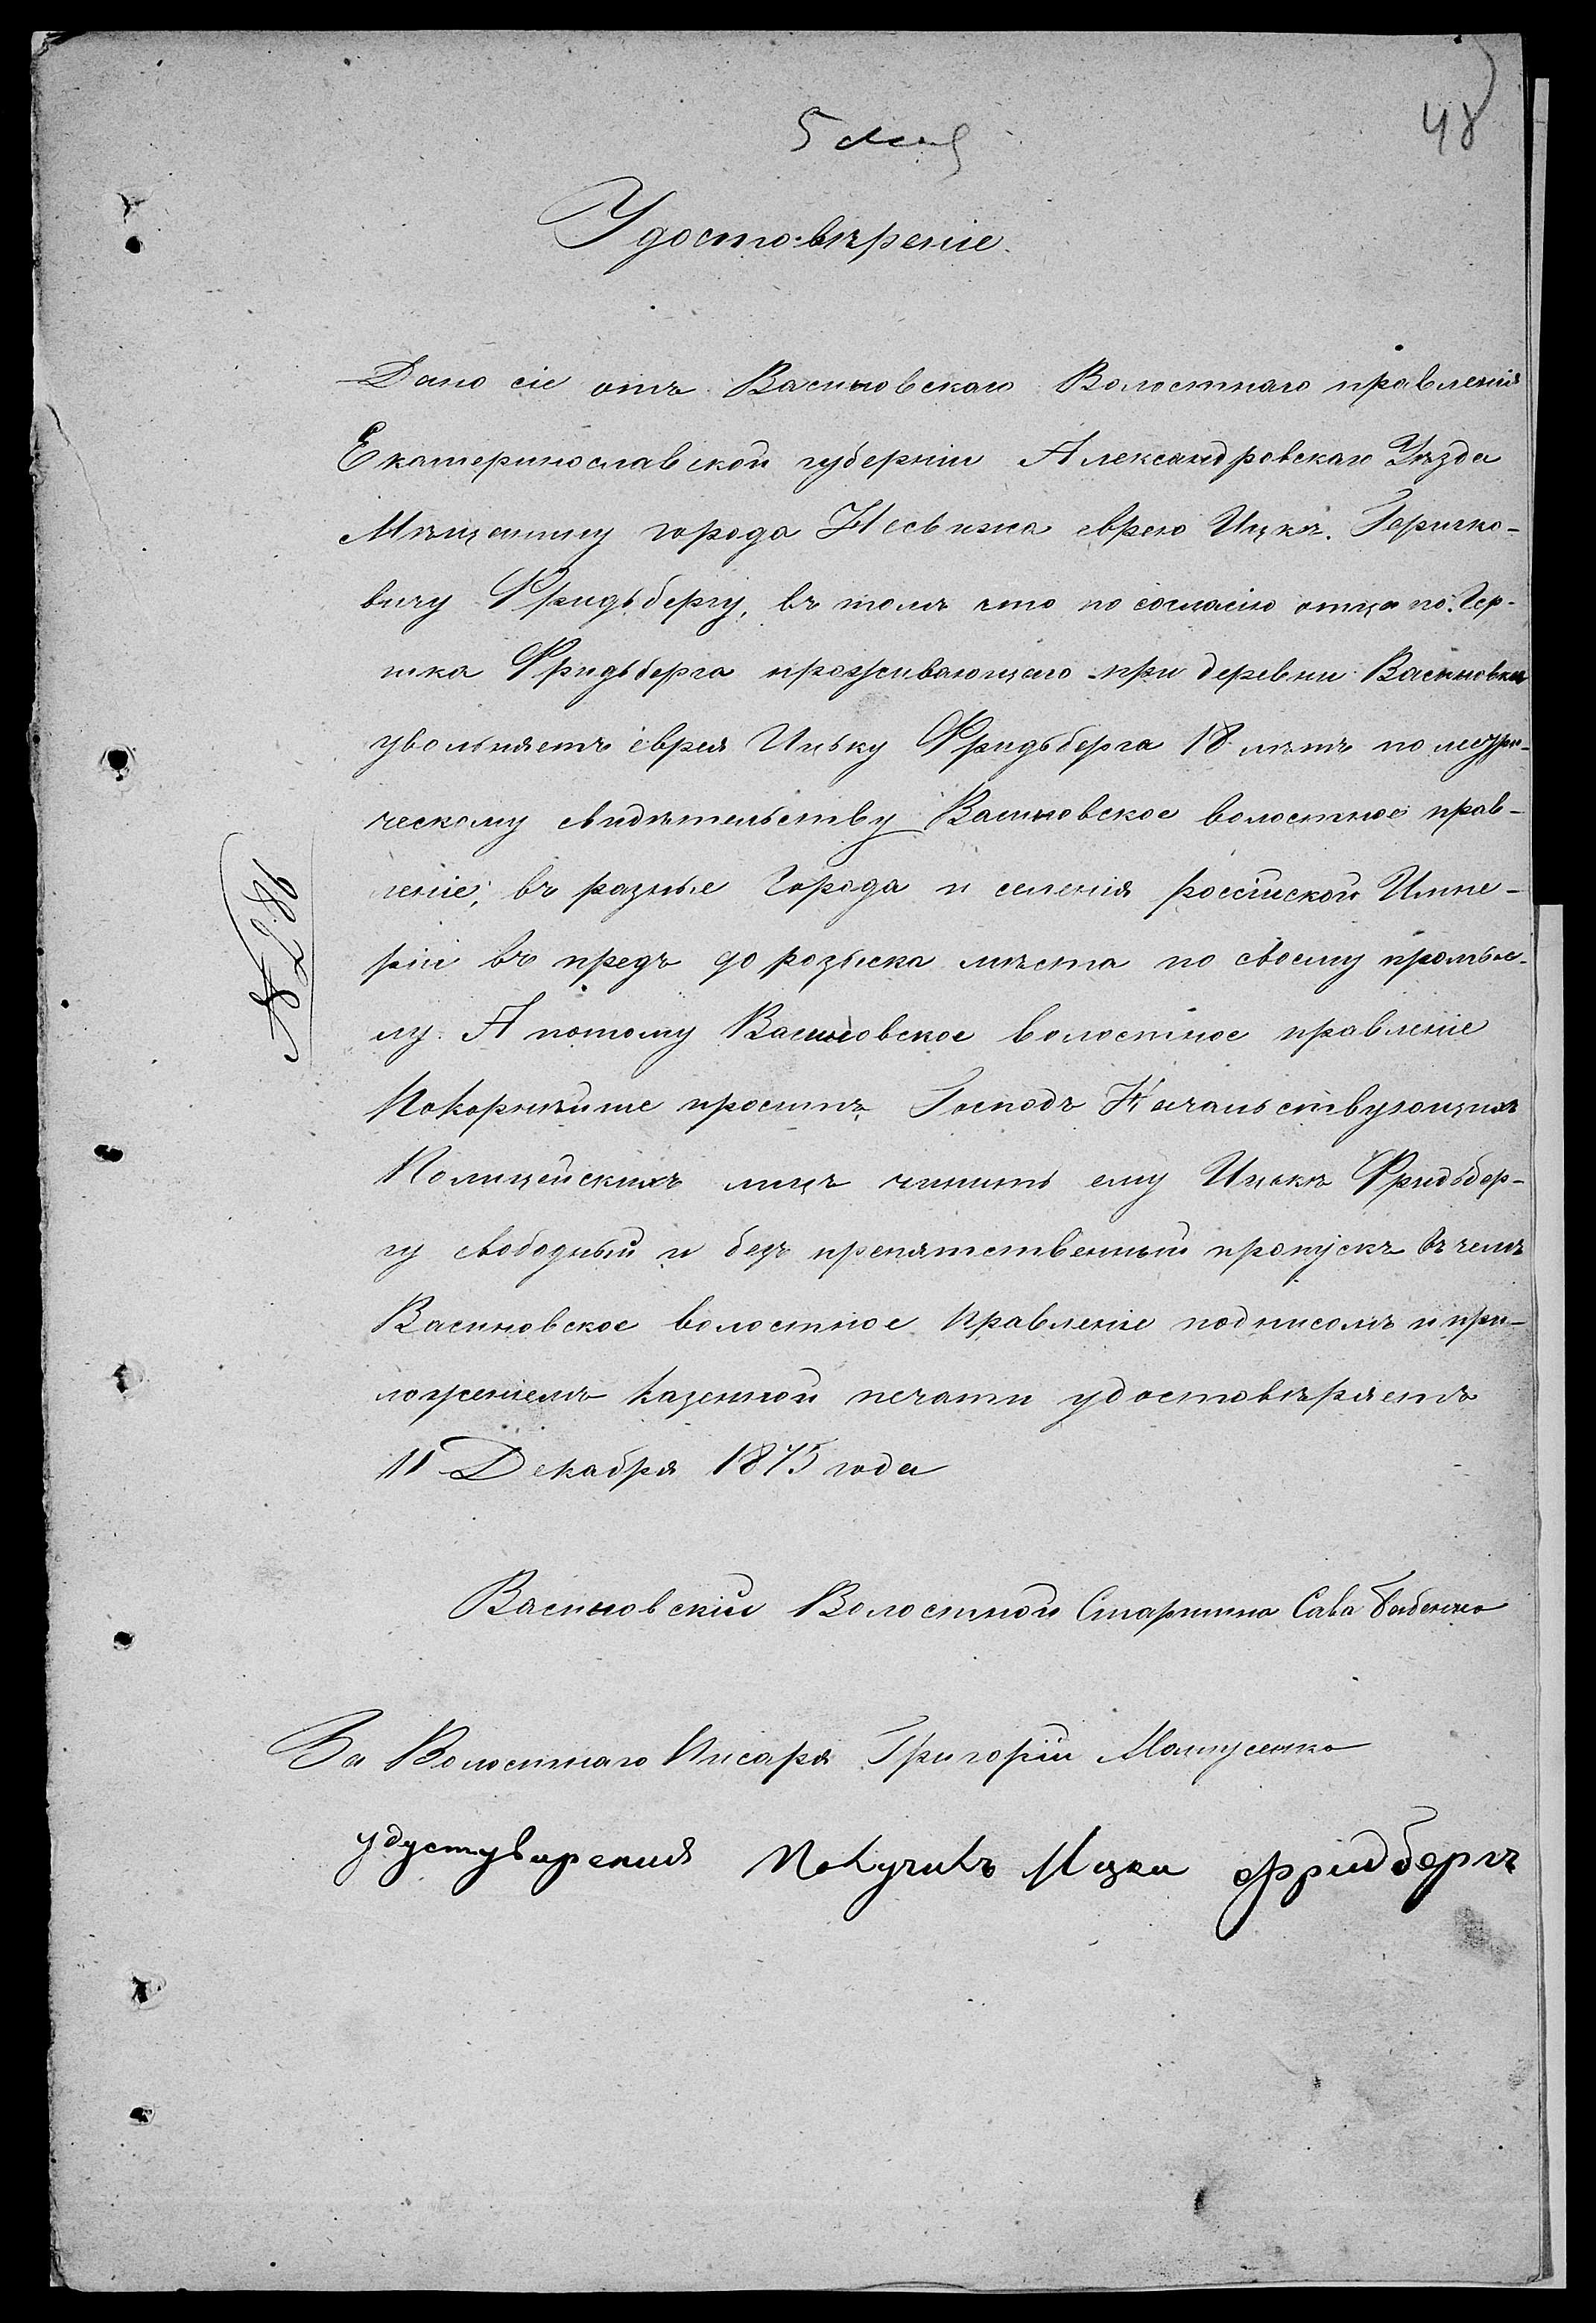 48
Удостовѣреніе.
Дано сіе отъ Васиновскаго Волостнаго правленія
Екатеринославской губерніи Александровскаго Уѣзда
Мѣщанину города Несвижа еврею Ицкѣ Гершко-
вичу Фридьбергу, въ томъ что по согласію отца по. Гер-
шка Фридьберга проживающаго при деревни Васиновки
увольняетъ еврея Ицьку Фридьберга 18 лѣтъ по метри-
ческому свидѣтельству Васиновское волостное прав-
леніе, въ разные Города и селенія россійской Импе-
ріи въ предъ до розыска мѣста по своему промыс-
лу. А потому Васиновское волостное правленіе
Покорнѣйше проситъ Господъ Начальствующихъ
Полицейскихъ лицъ чинить ему Ицькѣ Фридьбер-
гу свободный и безъ препятственный пропускъ въ чемъ
Васиновское волостное Правленіе подписомъ и при-
ложеніемъ казенной печати удостовѣряетъ
11 Декабря 1875 года
Васиновскій Волостной Старшина Сава Бабенко
За Волостнаго Писаря Григорій Матусенко
удустувиренія Покучикъ Ицка Фридбергъ